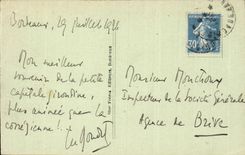 Bordeaux, 29 Juillet 1926
Mon meilleur
souvenir de la petite
capitale girondine,
plus animée que la
corrézienne !
Monsieur Monchoux
Inspecteur de la Société Générale
Agence de
Brive